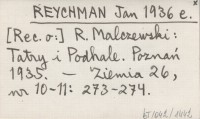 REYCHMAN Jan 1936 e.
[Rec. o:] R. Malczewski:
Tatry i Podhale. Poznań
1935. — Ziemia 26,
nr 10-11: 273-274.